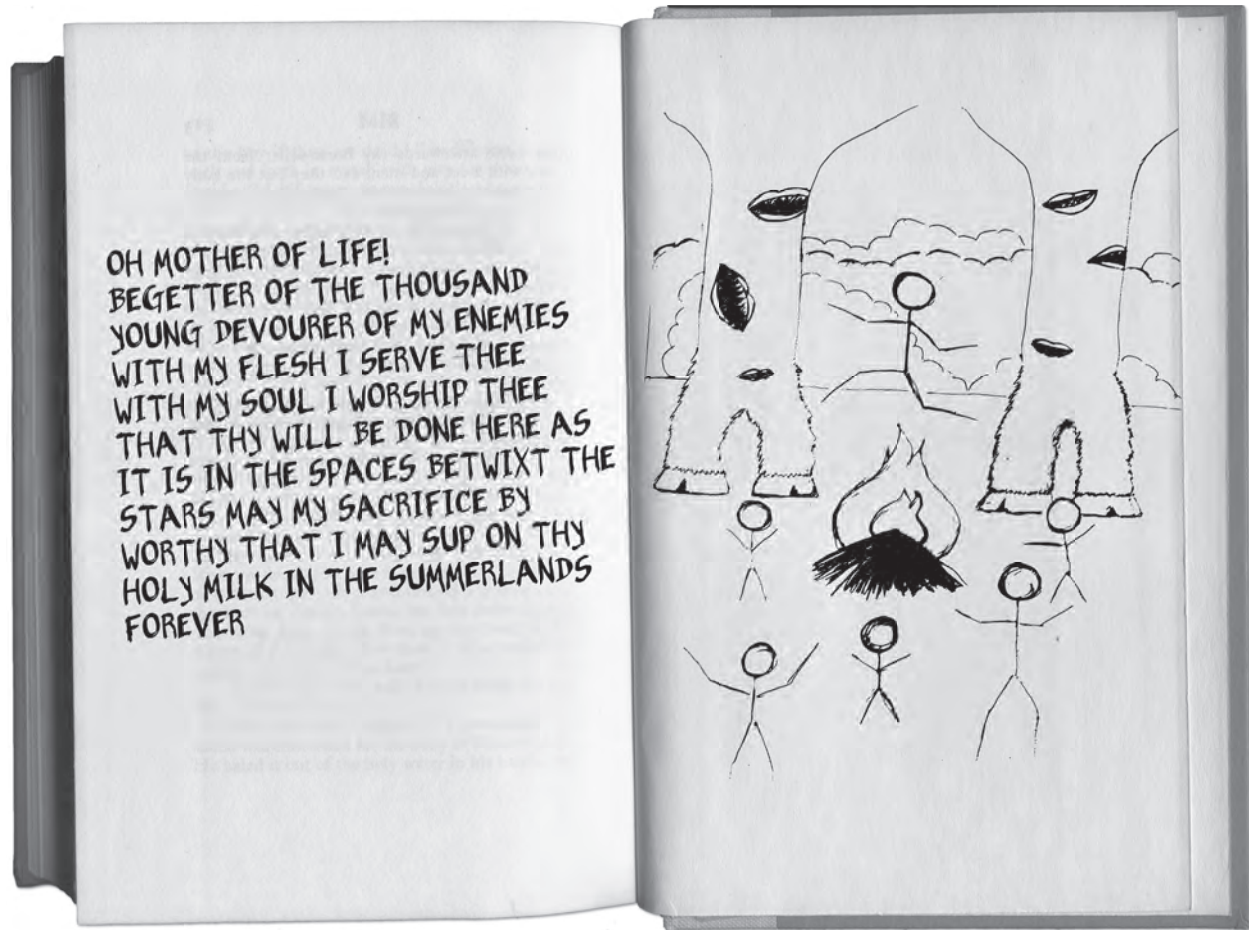 OH MOTHER OF LIFE!
BEGETTER OF THE THOUSAND
YOUNG DEVOURER OF MY ENEMIES
WITH MY FLESH I SERVE THEE
WITH MY SOUL I WORSHIP THEE
THAT THY WILL BE DONE HERE AS
IT IS IN THE SPACES BETWIXT THE
STARS MAY MY SACRIFICE BY
WORTHY THAT I MAY SUP ON THY
HOLY MILK IN THE SUMMERLANDS
FOREVER